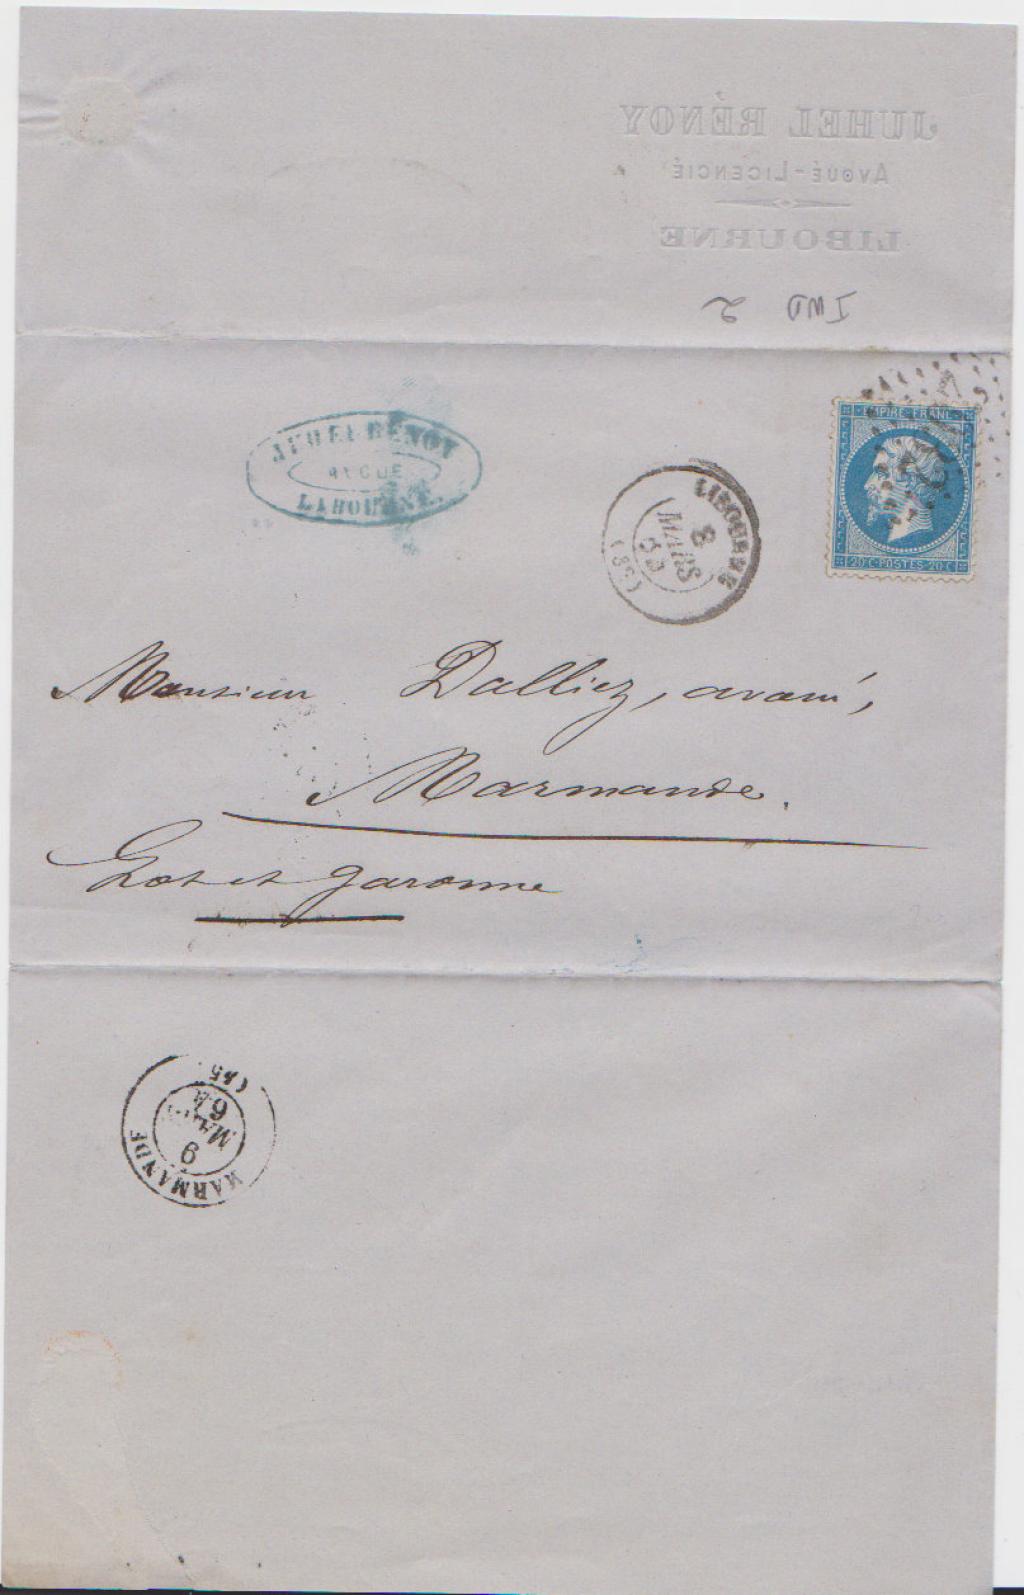 JUHEL RÉNOY
AVOUÉ-LICENCIÉ
LIBOURNE
IWD 2
JUHEL RÉNOY
AVOUÉ
LIBOURNE
EMPIRE FRANC
20 C POSTES 20 C
LIBOURNE
8
MARS
(32)
Monsieur Dalliez, avoué,
Marmande.
Lot et garonne
MARMANDE
9
MARS
6 E